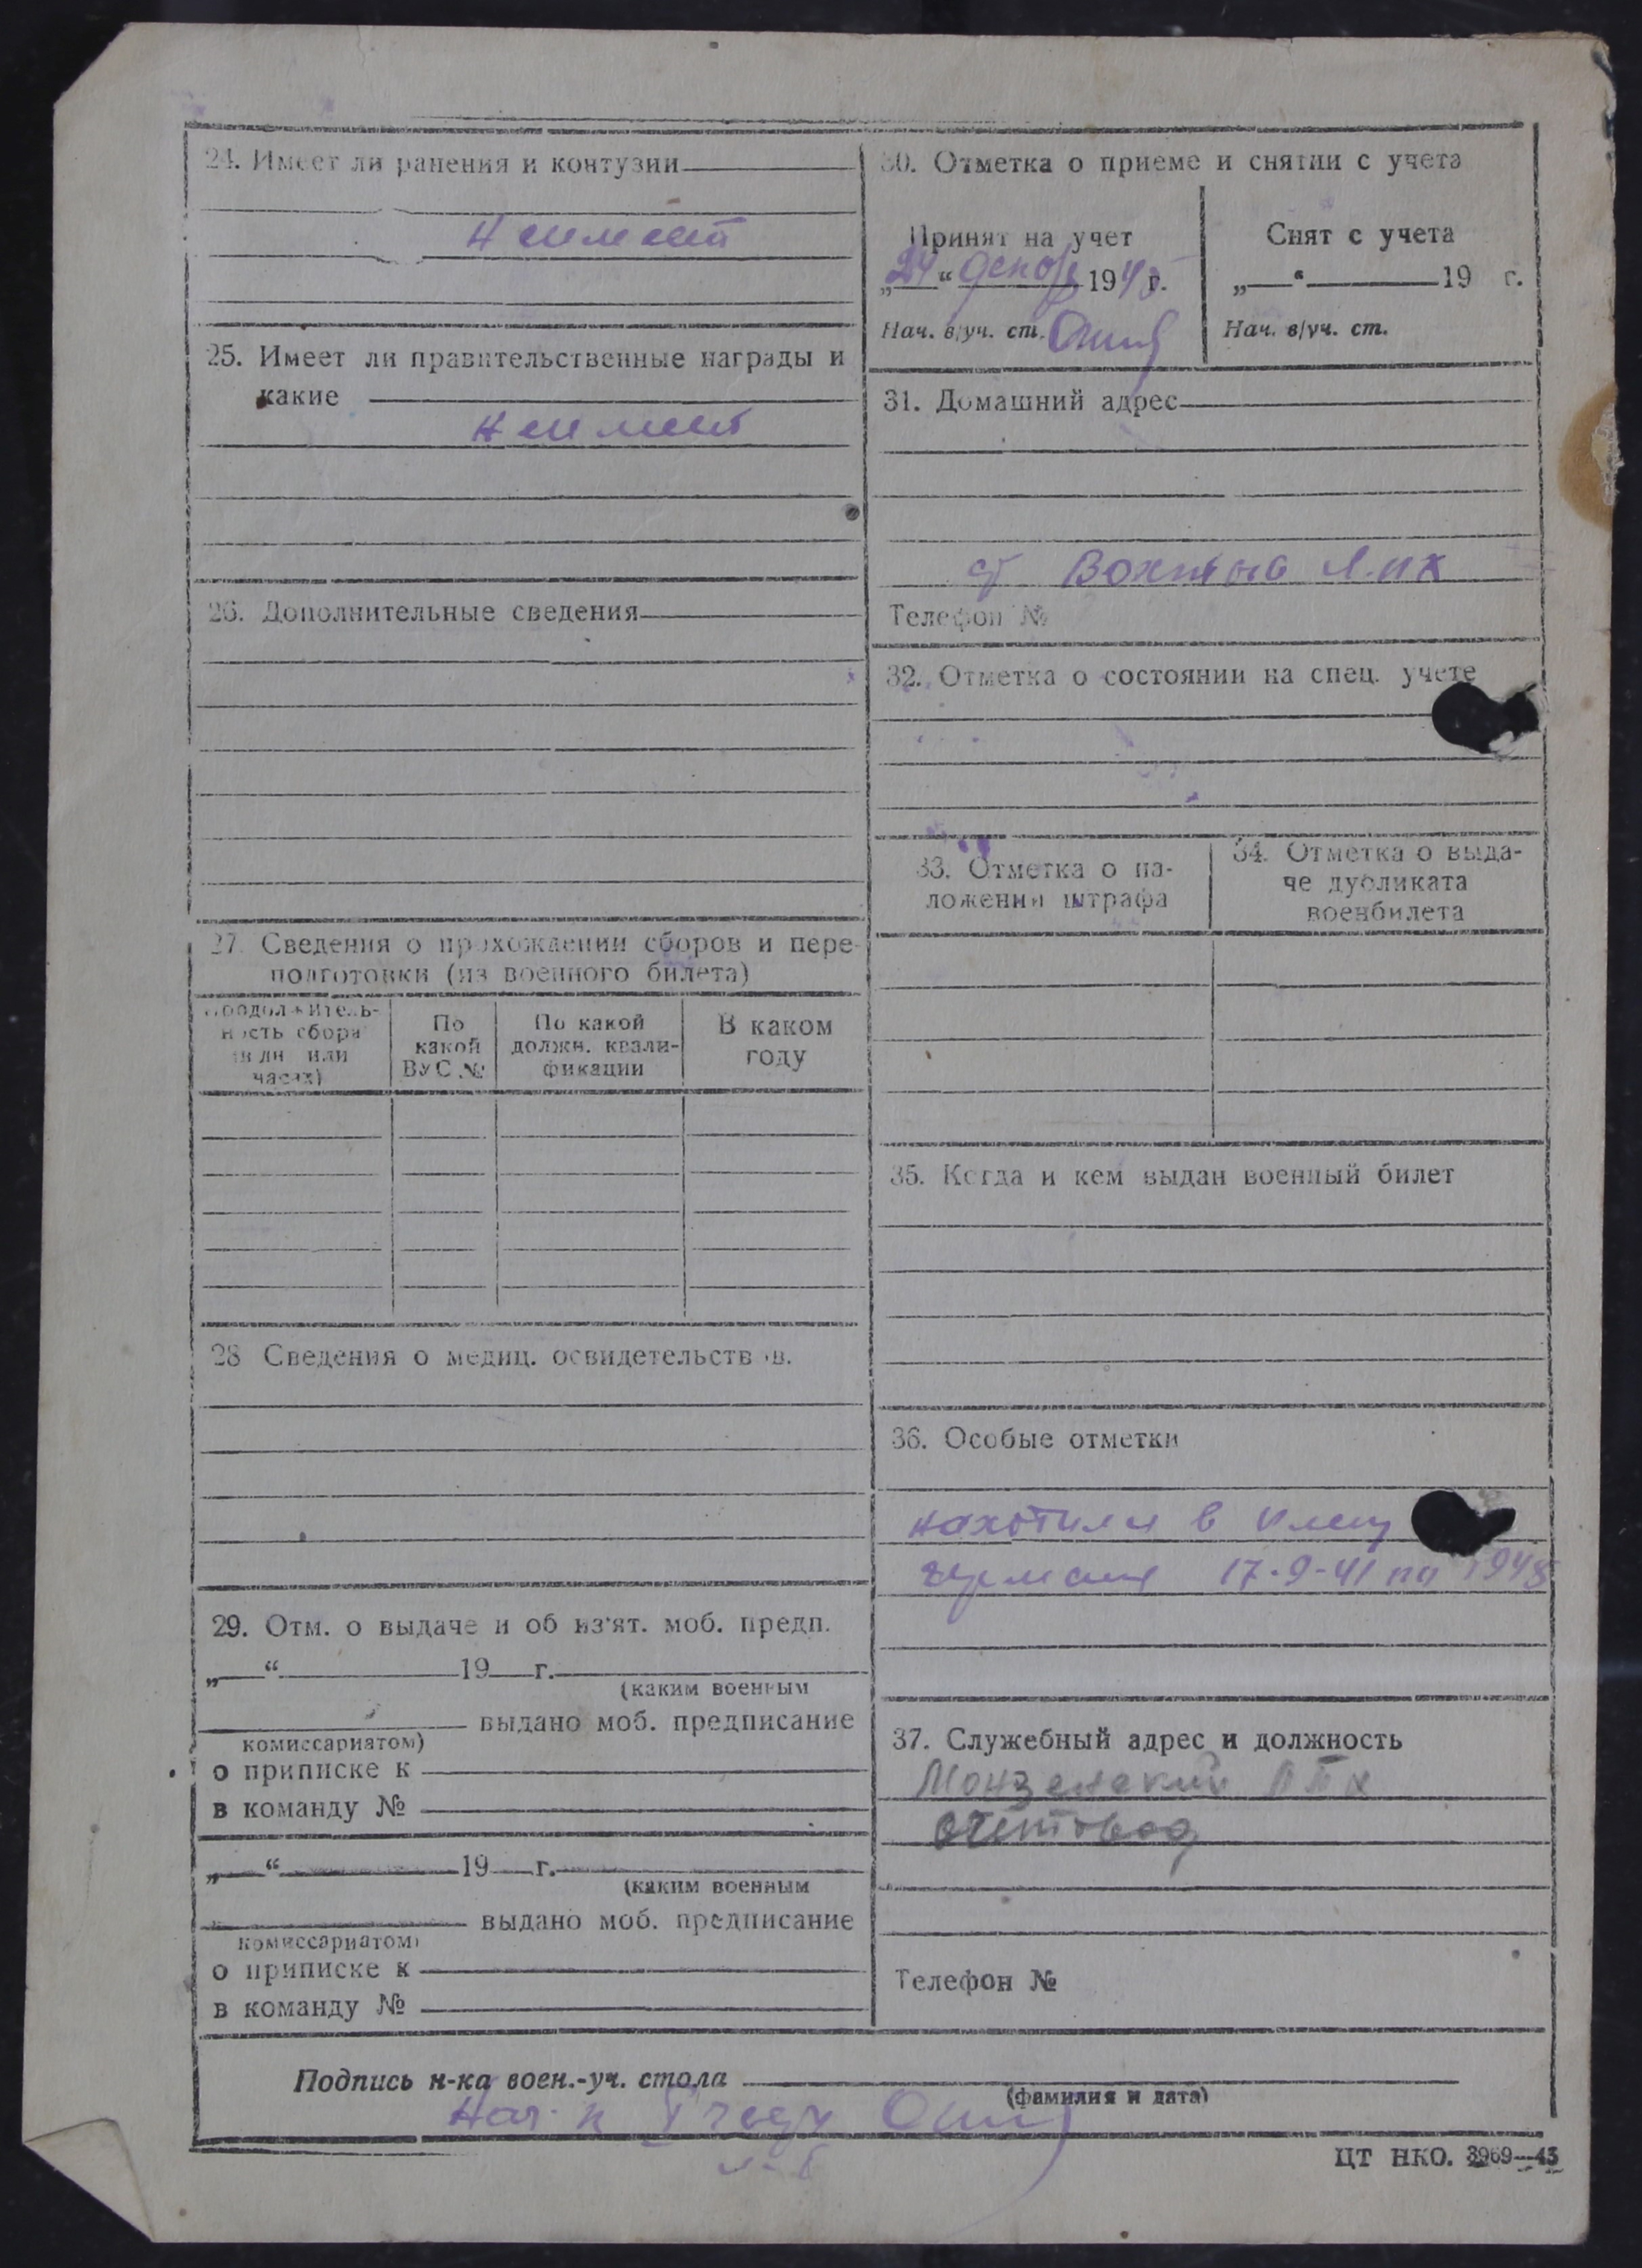 24. Имеет ли ранения и контузии
не имеет
25. Имеет ли правительственные награды и
какие
не имеет
26. Дополнительные сведения
27. Сведения о прохождении сборов и пере-
подготовки (из военного билета)
Продолжитель-
ность сбора
(в дн или
часах)
По
какой
ВУС №
По какой
должн. квали-
фикации
В каком
году
28 Сведения о медиц. освидетельствов.
29. Отм. о выдаче и об из'ят. моб. предп.
„ “ 19 г.
(каким военным
выдано моб. предписание
комиссариатом)
о приписке к
в команду №
„ “ 19 г.
(каким военным
выдано моб. предписание
комиссариатом)
о приписке к
в команду №
30. Отметка о приеме и снятии с учета
Принят на учет
„24“ декабр 1945 г.
Нач. в/уч. ст.
Снят с учета
„ “ 19 г.
Нач. в/уч. ст.
31. Домашний адрес
Телефон №
32. Отметка о состоянии на спец. учете
33. Отметка о на-
ложении штрафа
34. Отметка о выда-
че дубликата
военбилета
35. Когда и кем выдан военный билет
36. Особые отметки
находился в плену
германия 17-9-41 по 1945
37. Служебный адрес и должность
Монзенский
счетовод
Телефон №
Подпись н-ка воен.-уч. стола
(фамилия и дата)
ЦТ НКО. 3969—43